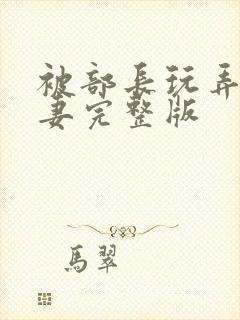 被部长玩弄
妻完整版
馬翠